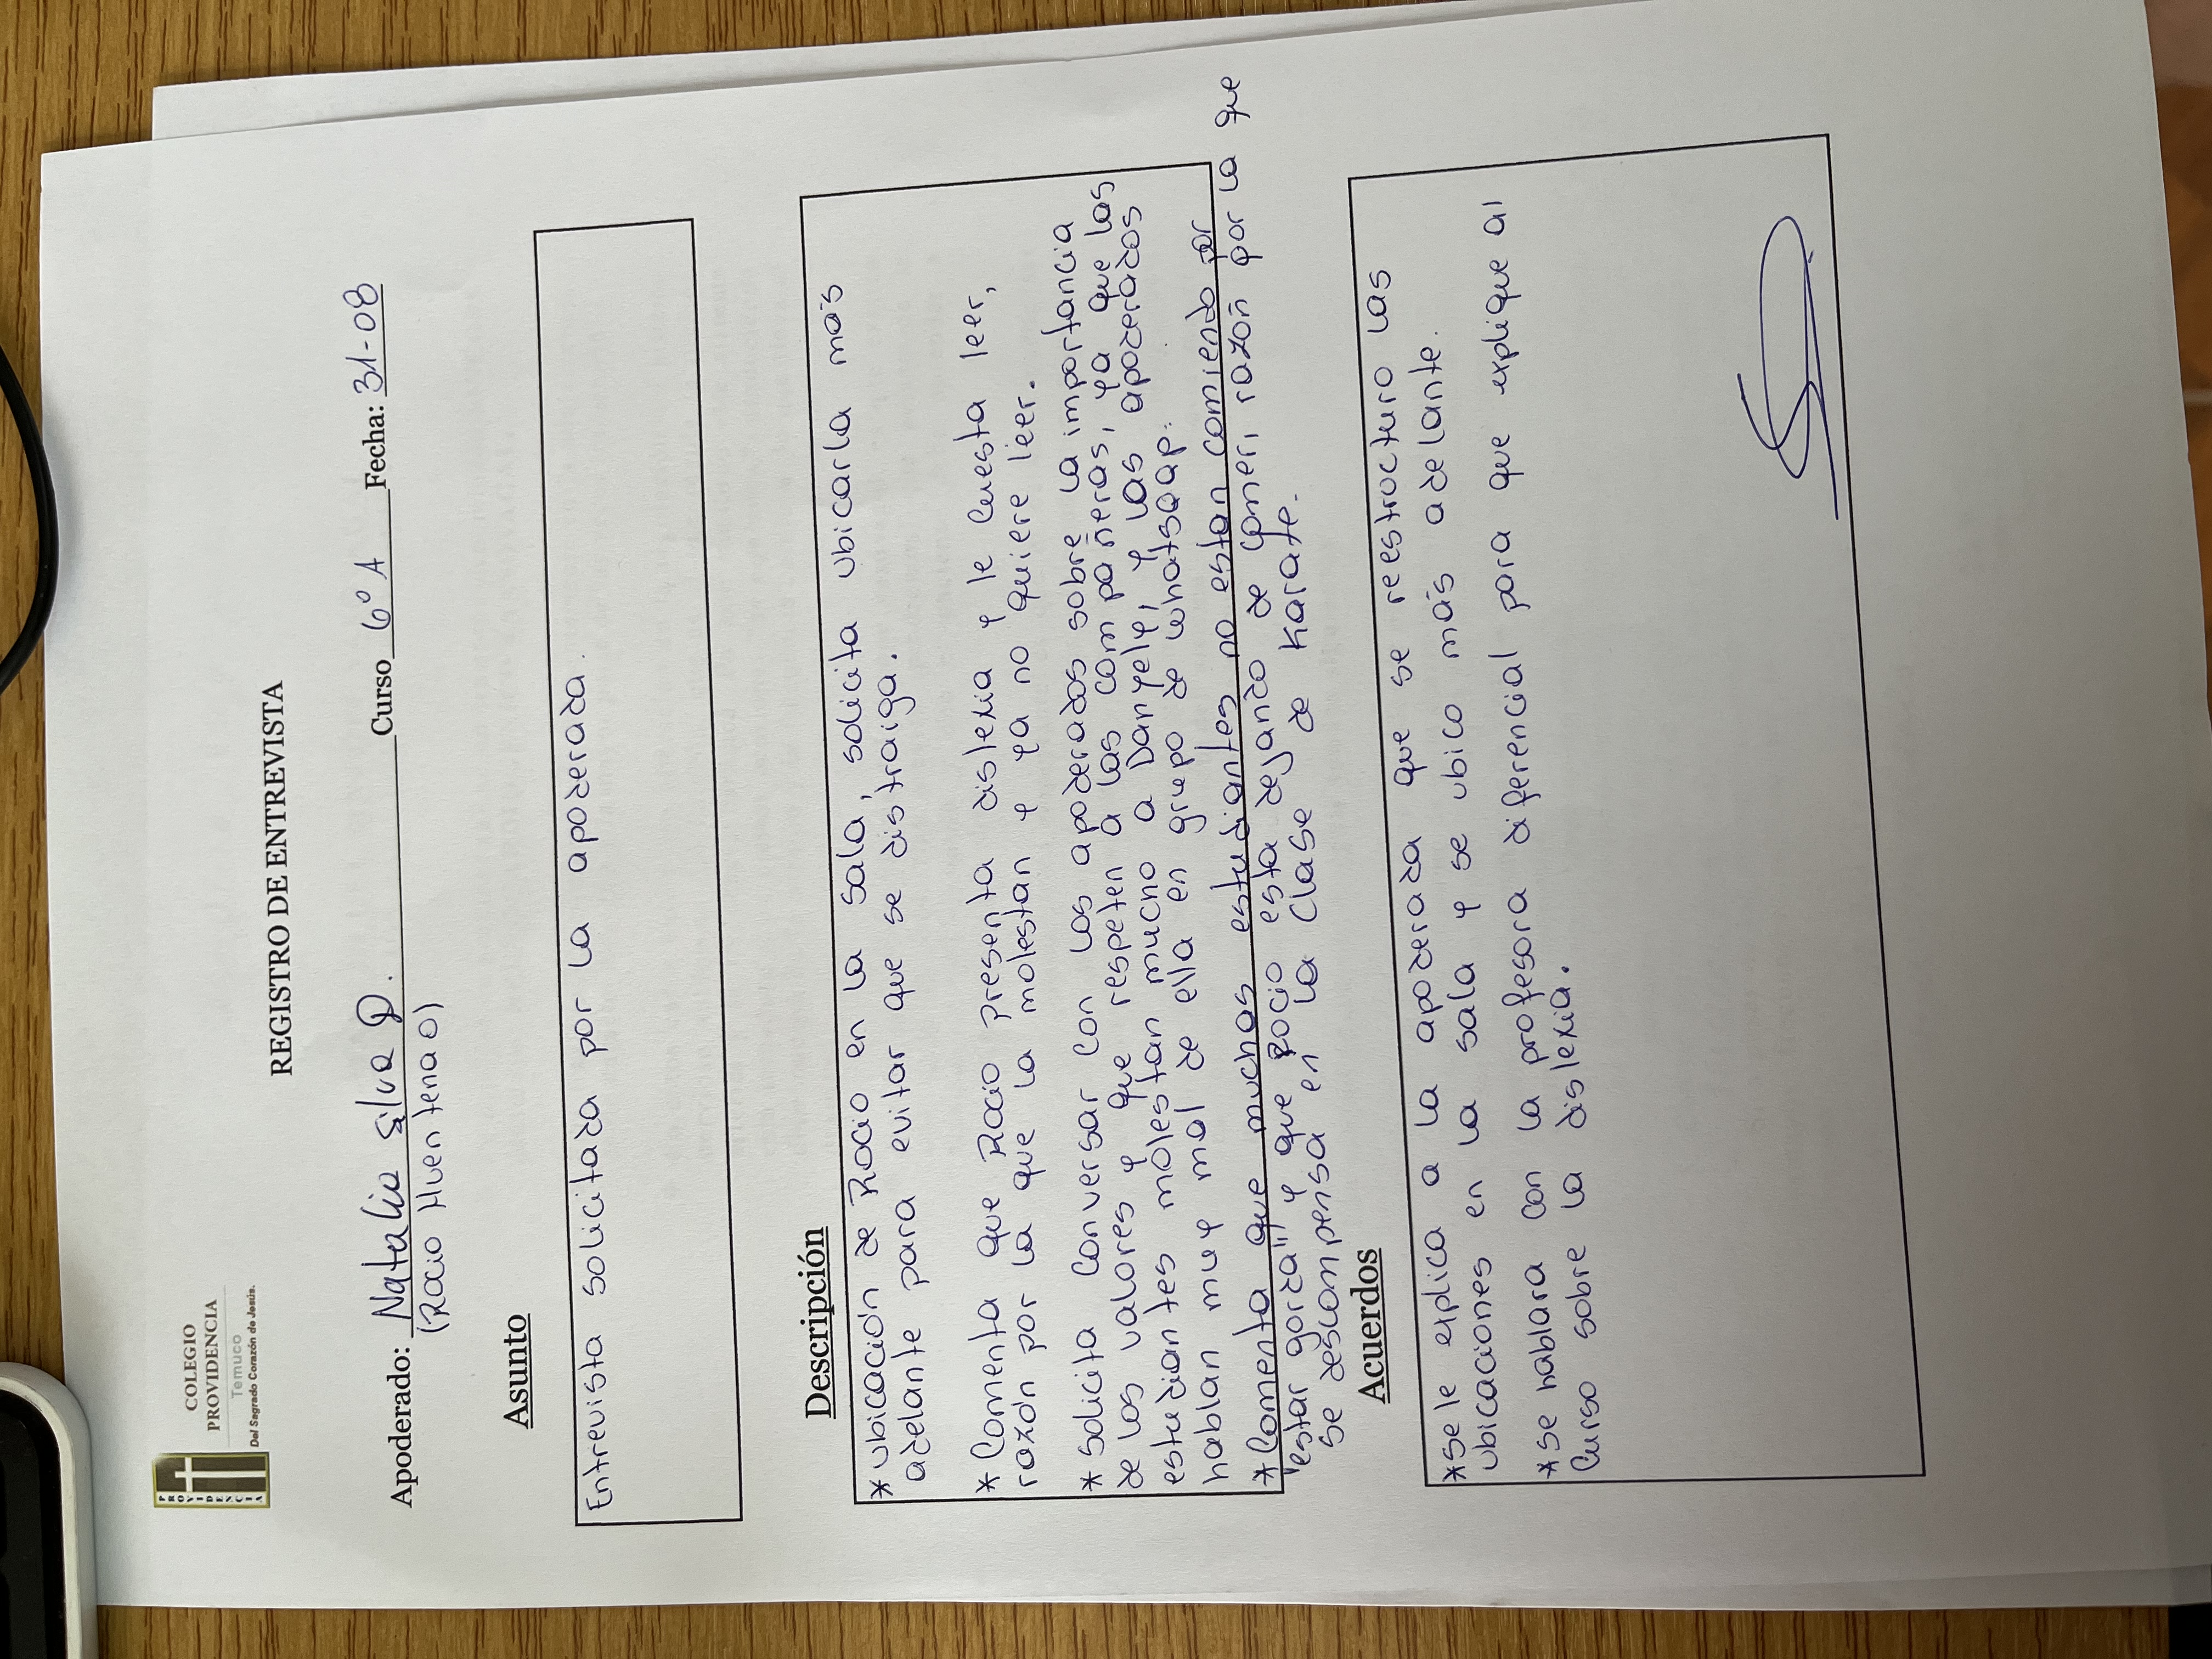 PROVIDENCIA
COLEGIO
PROVIDENCIA
Temuco
Del Sagrado Corazón de Jesús.
REGISTRO DE ENTREVISTA
Apoderado: Natalia Silva P. Curso 6° A Fecha: 31-08
(Rocio Huentenao)
Asunto
Entrevista solicitada por la apoderada.
Descripción
* ubicación de Rocio en la sala, solicita ubicarla más
adelante para evitar que se distraiga.
* Comenta que Rocio presenta dislexia y le cuesta leer,
razón por la que la molestan y ya no quiere leer.
* solicita conversar con los apoderados sobre la importancia
de los valores y que respeten a las compañeras, ya que las
estudiantes molestan mucho a Danyely, y las apoderados
hablan muy mal de ella en grupo de whatsaap.
* Comenta que muchas estudiantes no estan comiendo por
"estar gorda" y que Rocio esta dejando de comer, razón por la que
se descompensa en la clase de karate.
Acuerdos
* se le explica a la apoderada que se reestructuro las
ubicaciones en la sala y se ubico más adelante.
* se hablara con la profesora diferencial para que explique al
curso sobre la dislexia.